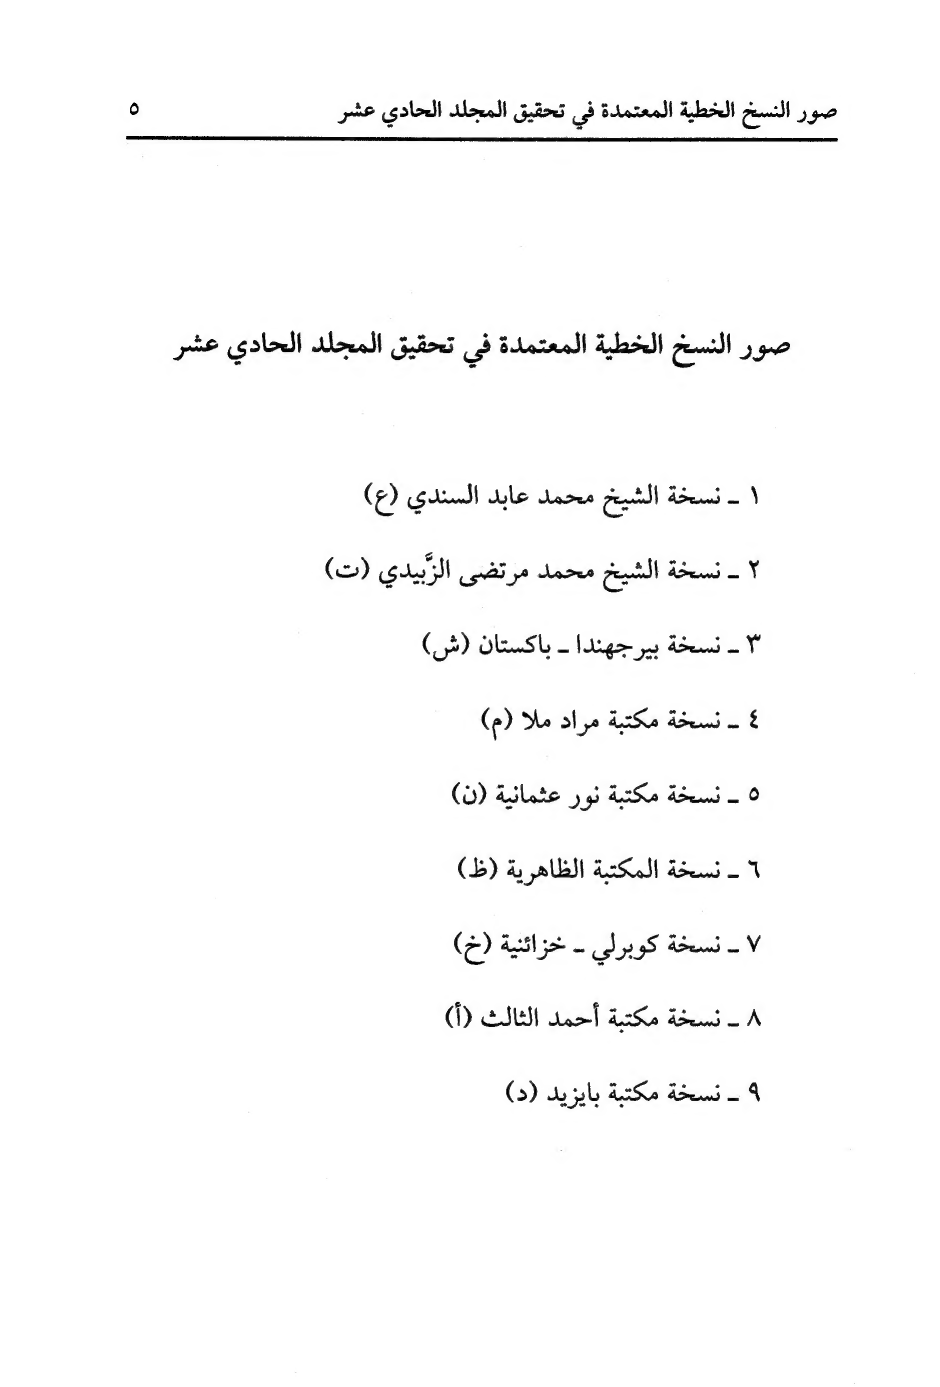 صور النسخ الخطية المعتمدة في تحقيق المجلد الحادي عشر ٥
صور النسخ الخطية المعتمدة في تحقيق المجلد الحادي عشر
١ ـ نسخة الشيخ محمد عابد السندي (ع)
٢ ـ نسخة الشيخ محمد مرتضى الزَّبيدي (ت)
٣ ـ نسخة بيرجهندا ـ باكستان (ش)
٤ ـ نسخة مكتبة مراد ملا (م)
٥ ـ نسخة مكتبة نور عثمانية (ن)
٦ ـ نسخة المكتبة الظاهرية (ظ)
٧ ـ نسخة كوبرلي ـ خزائنية (خ)
٨ ـ نسخة مكتبة أحمد الثالث (أ)
٩ ـ نسخة مكتبة بايزيد (د)